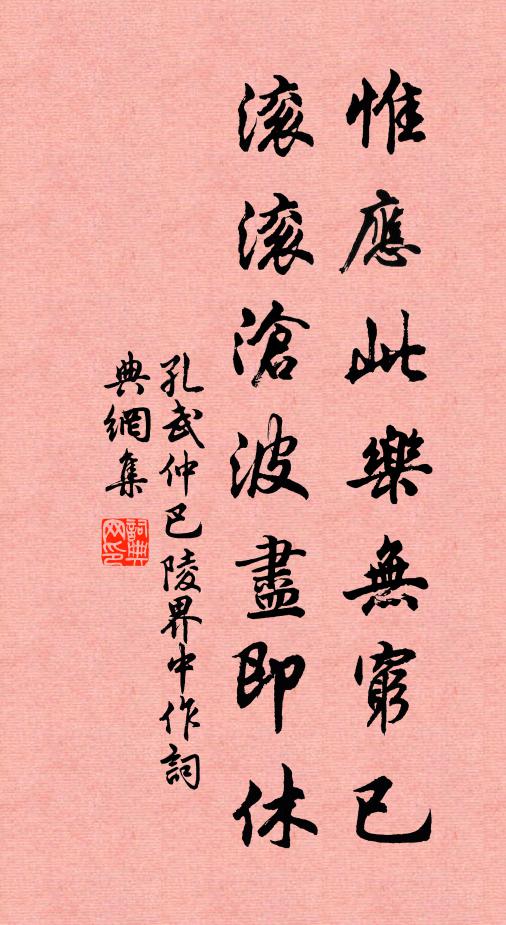 惟應此樂無窮已
滚滚滄波盡即休
孔武仲巴陵界中作詞
典網集
詞典網印